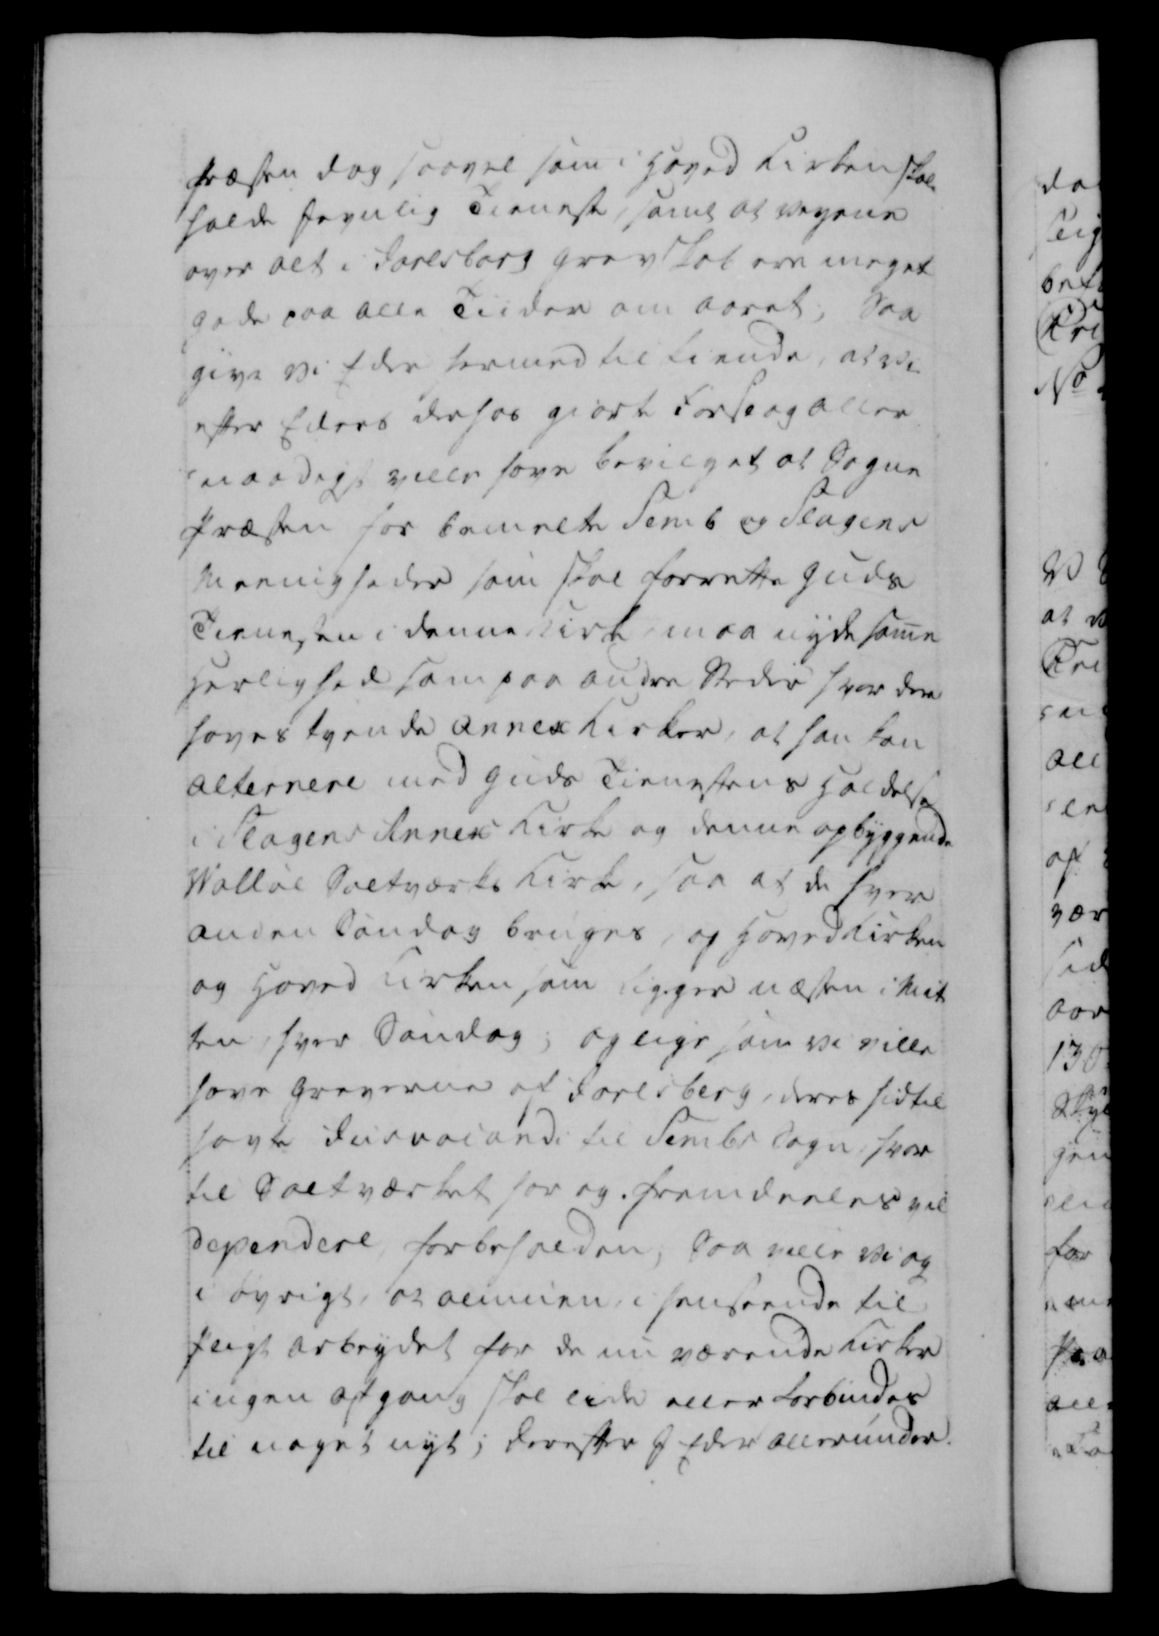 Præsten dog saavel som i Hoved Kirken skal
holde fornulig Tieneste, samt at Veyene
over alt i Jarlsberg Grevskab ere meget
gode paa alle Tiider om aaret; Saa
give vi Eder hermed til kiende, at vi
efter Eders derhos giorte Forslag aller
naadigst ville have bevilget at Sogne
Præsten for bemelte Semb og Slagens
Meenigheder som skal forrette Guds
Tienesten i denne Kirke, maa nyde samme
Herlighed som paa andre Steder hvor der
haves tvende Annex Kirker, at han kan
alternere med Guds Tienestens Holdelse
i Slagens Annex Kirke og denne opbyggende
Walløe Saltværks Kirke, saa at de hver
anden Søndag bruges, og Hoved Kirken
og Hoved Kirken som ligger næsten i Mit
ten, hver Søndag; og lige som vi ville
have Greverne af Jarlsberg, deres hidtil
havte Jus vocandi til Sembs Sogn, hvor
til Saltværket har og fremdeeles vil
dependere, forbeholden; Saa ville vi og
i øvrigt, at almuen, i henseende til
Pligt arbeydet for de nu værende Kirker
ingen afgang skal lide eller forbindes
til noget nyt; derefter I Eder allerunder.